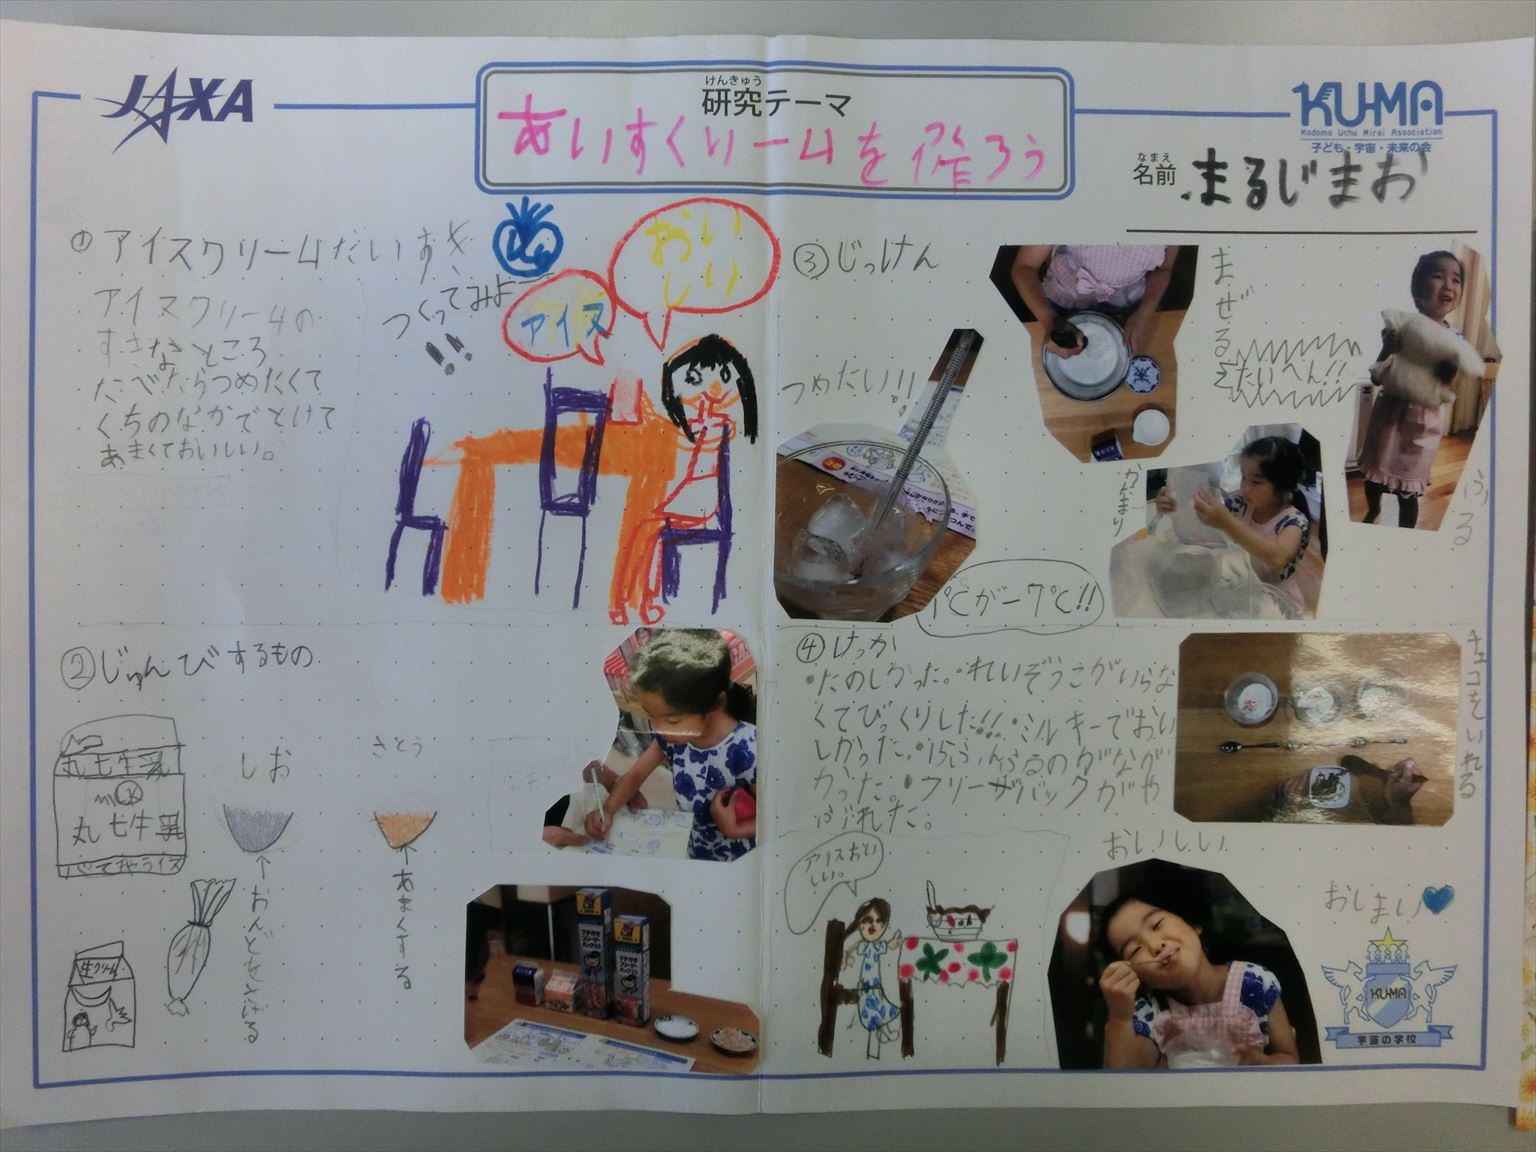 JAXA
けんきゅう
研究テーマ
あいすくりームを作ろう
KU-MA
Kodomo Uchu Mirai Association
子ども・宇宙・未来の会
なまえ
名前
まるじまお
① アイスクリームだいすき
つくってみよー
!!
アイスクリームの
すきなところ
たべたらつめたくて
くちのなかでとけて
あまくておいしい。
アイス
おいしい
②じゅんびするもの
丸七牛乳
丸七牛乳
しお
さとう
←おんどをさげる
←あまくする
生クリーム
③じっけん
つめたい!!
まぜる
たいへん!!
ふる
かたまり
1℃が-7℃!!
④けっか
・たのしかった。・れいぞうこがいらな
くてびっくりした!!・ミルキーでおい
しかった。・15ふんふるのがなが
かった。・フリーザバックがや
ぶれた。
チョコをいれる
アイスおい
しい。
おいしい
おしまい
KU-MA
宇宙の学校